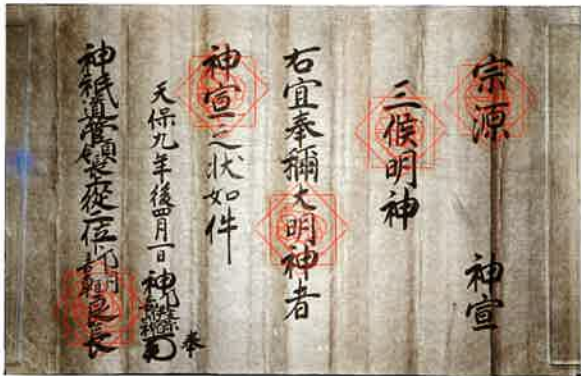 宗源 神宣
三侯明神
右宜奉稱大明神者
神宣之状如件
天保九年後四月一日 神 奉
神祇道管領長従二位卜部朝臣良長